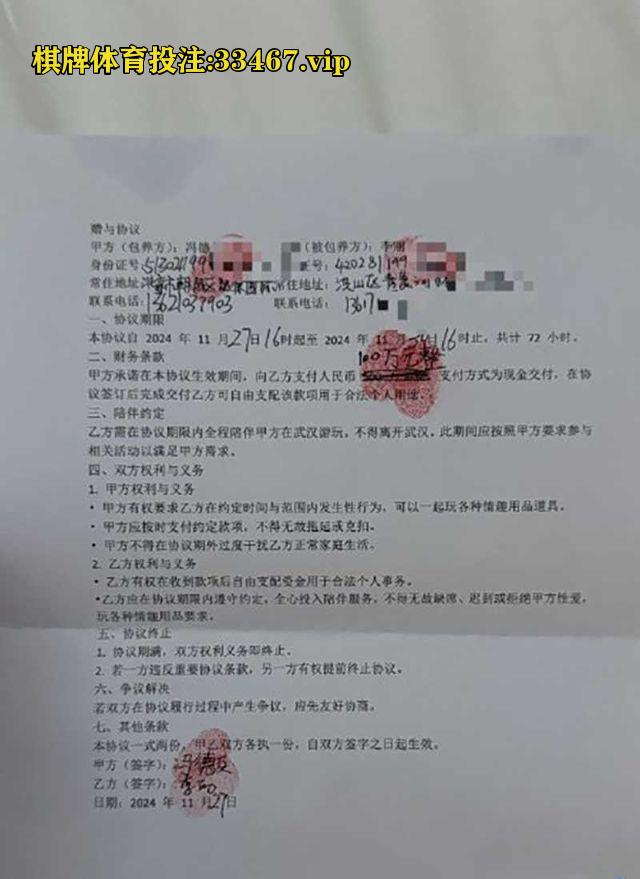 棋牌体育投注:33467.vip
赠与协议
甲方（包养方）：冯德 （被包养方）：李
身份证号：
常住地址： 常住地址：洪山区
联系电话： 联系电话：
一、协议期限
本协议自 2024 年 11 月27日16时起至 2024 年 11 月 日16时止，共计 72 小时。
二、财务条款
100万元整
甲方承诺在本协议生效期间，向乙方支付人民币 支付方式为现金交付，在协
议签订后完成交付乙方可自由支配该款项用于合法个人用途。
三、陪伴约定
乙方需在协议期限内全程陪伴甲方在武汉游玩，不得离开武汉。此期间应按照甲方要求参与
相关活动以满足甲方需求。
四、双方权利与义务
1. 甲方权利与义务
• 甲方有权要求乙方在约定时间与范围内发生性行为，可以一起玩各种情趣用品道具。
• 甲方应按时支付约定款项，不得无故拖延或克扣。
• 甲方不得在协议期外过度干扰乙方正常家庭生活。
2. 乙方权利与义务
• 乙方有权在收到款项后自由支配资金用于合法个人事务。
•乙方应在协议期限内遵守约定，全心投入陪伴服务，不得无故缺席、迟到或拒绝甲方性爱，
玩各种情趣用品要求。
五、协议终止
1. 协议期满，双方权利义务即终止。
2. 若一方违反重要协议条款，另一方有权提前终止协议。
六、争议解决
若双方在协议履行过程中产生争议，应先友好协商。
七、其他条款
本协议一式两份，甲乙双方各执一份，自双方签字之日起生效。
甲方（签字）：冯德
乙方（签字）：李
日期：2024 年 11 月27日